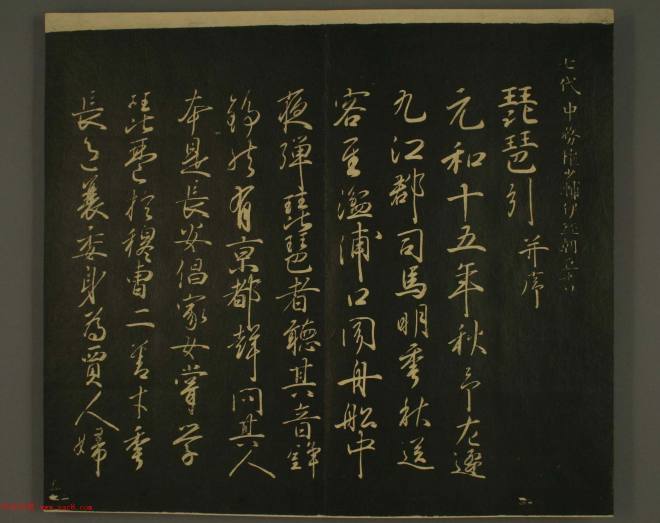 七代中務權少輔伊經朝臣
琵琶引 并序
元和十五年秋予左遷
九江郡司馬明年秋送
容至湓浦口聞舟船中
夜彈琵琶者聽其音錚
錚然有京都聲問其人
本是長安倡家女嘗學
琵琶於穆曹二善才年
長色衰委身為賈人婦
www.yac8.com